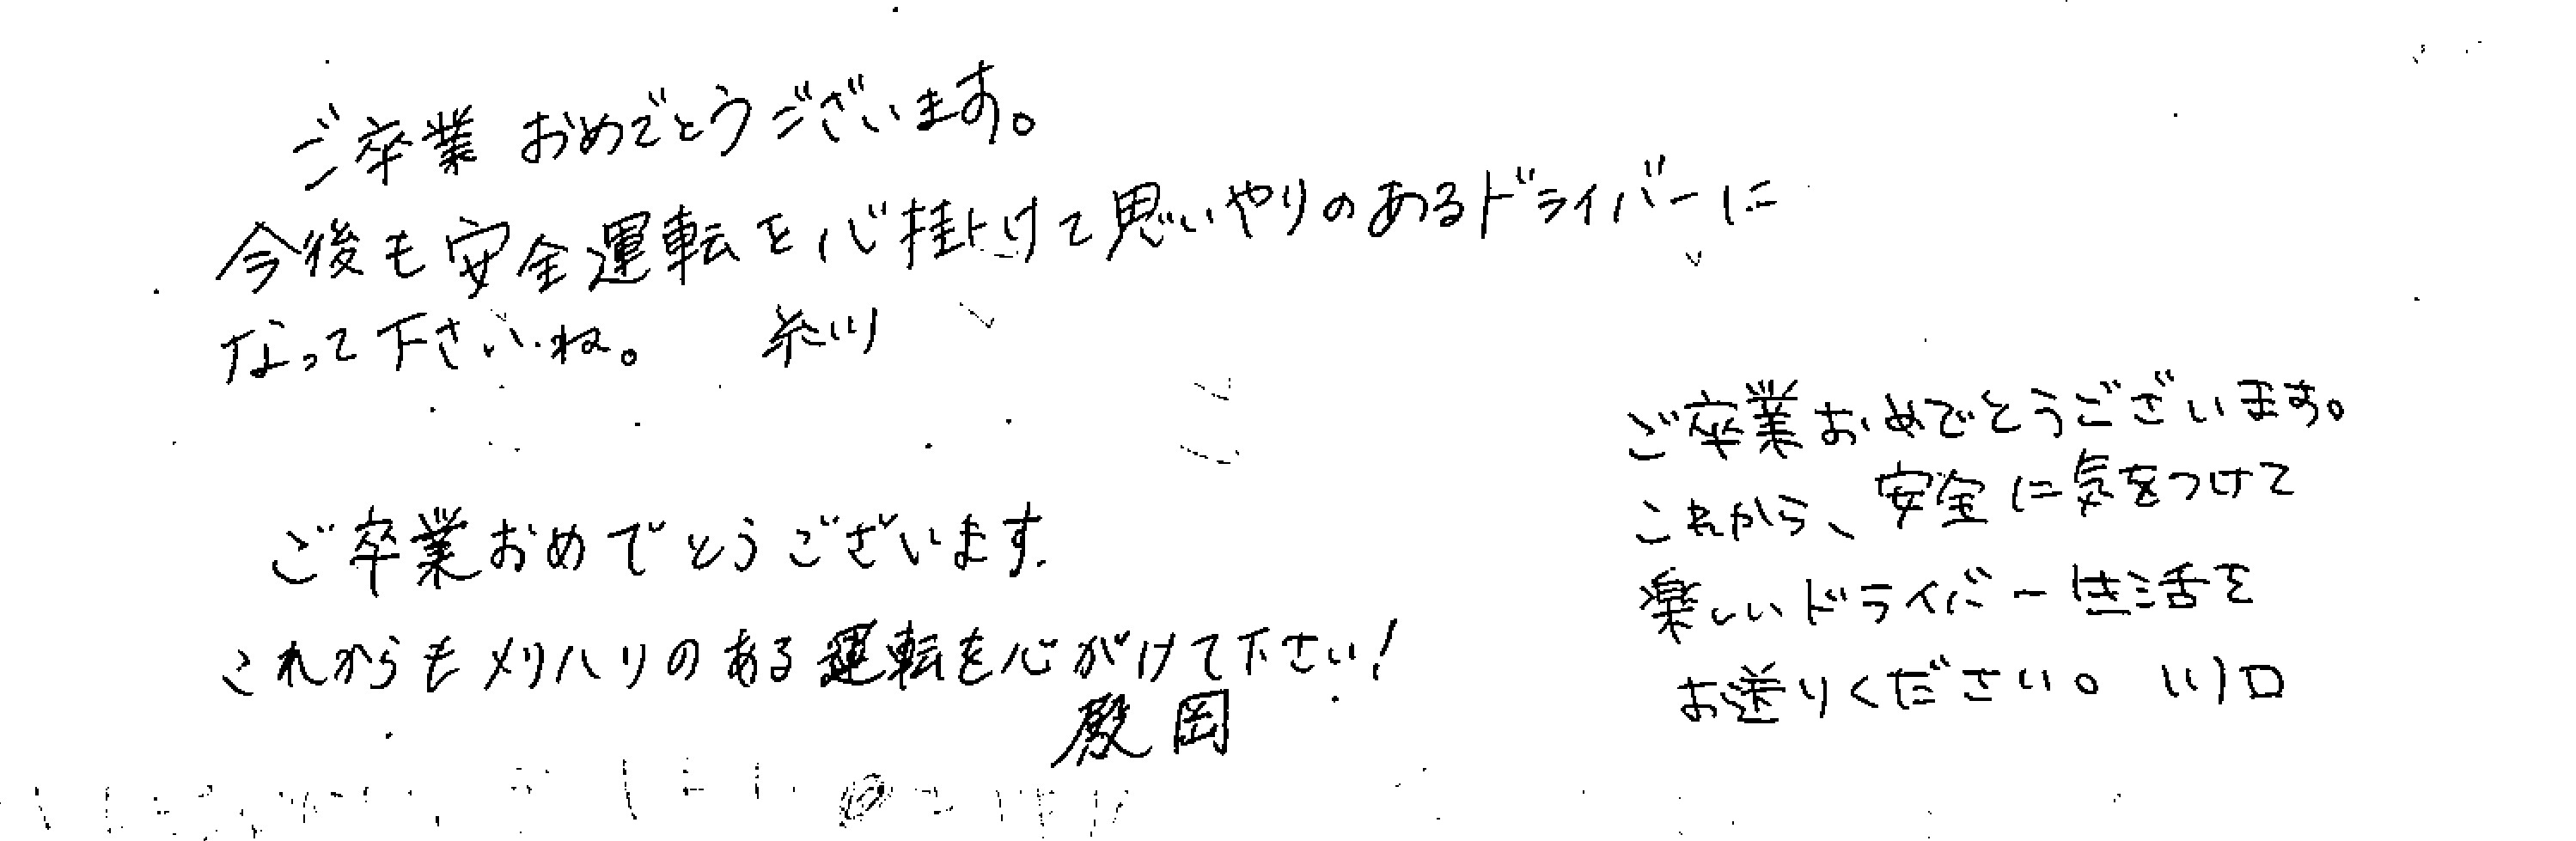 ご卒業おめでとうございます。
今後も安全運転を心掛けて思いやりのあるドライバーに
なって下さいね。 糸川
ご卒業おめでとうございます.
これからもメリハリのある運転を心がけて下さい!
殿岡
ご卒業おめでとうございます。
これから、安全に気をつけて
楽しいドライバー生活を
お送りください。 川口